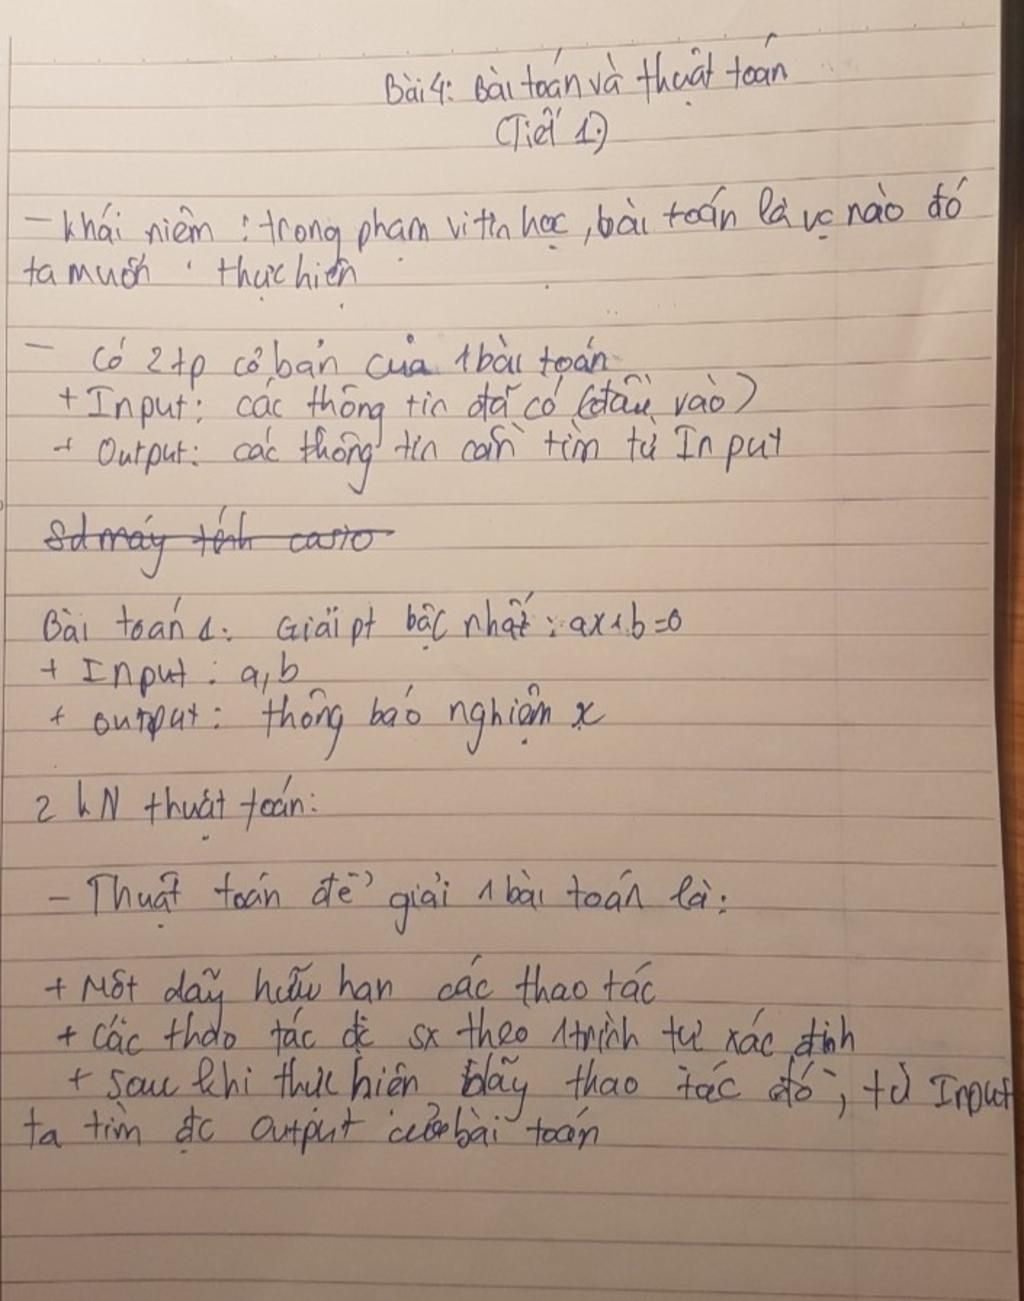 Bài 4: Bài toán và thuật toán
(Tiết 1)
- khái niệm : trong phạm vi tin học, bài toán là vc nào đó
ta muốn thực hiện
- có 2 tp cơ bản của 1 bài toán
+ Input: các thông tin đã có (đầu vào)
+ Output: các thông tin cần tìm từ Input
Sd máy tính casio
Bài toán 1: Giải pt bậc nhất : ax+b=0
+ Input : a,b
+ output : thông báo nghiệm x
2 kN thuật toán:
- Thuật toán để giải 1 bài toán là:
+ Một dãy hữu hạn các thao tác
+ các thao tác đc sx theo 1 trình tự xác định
+ sau khi thực hiện dãy thao tác đó, từ Input
ta tìm đc Output của bài toán